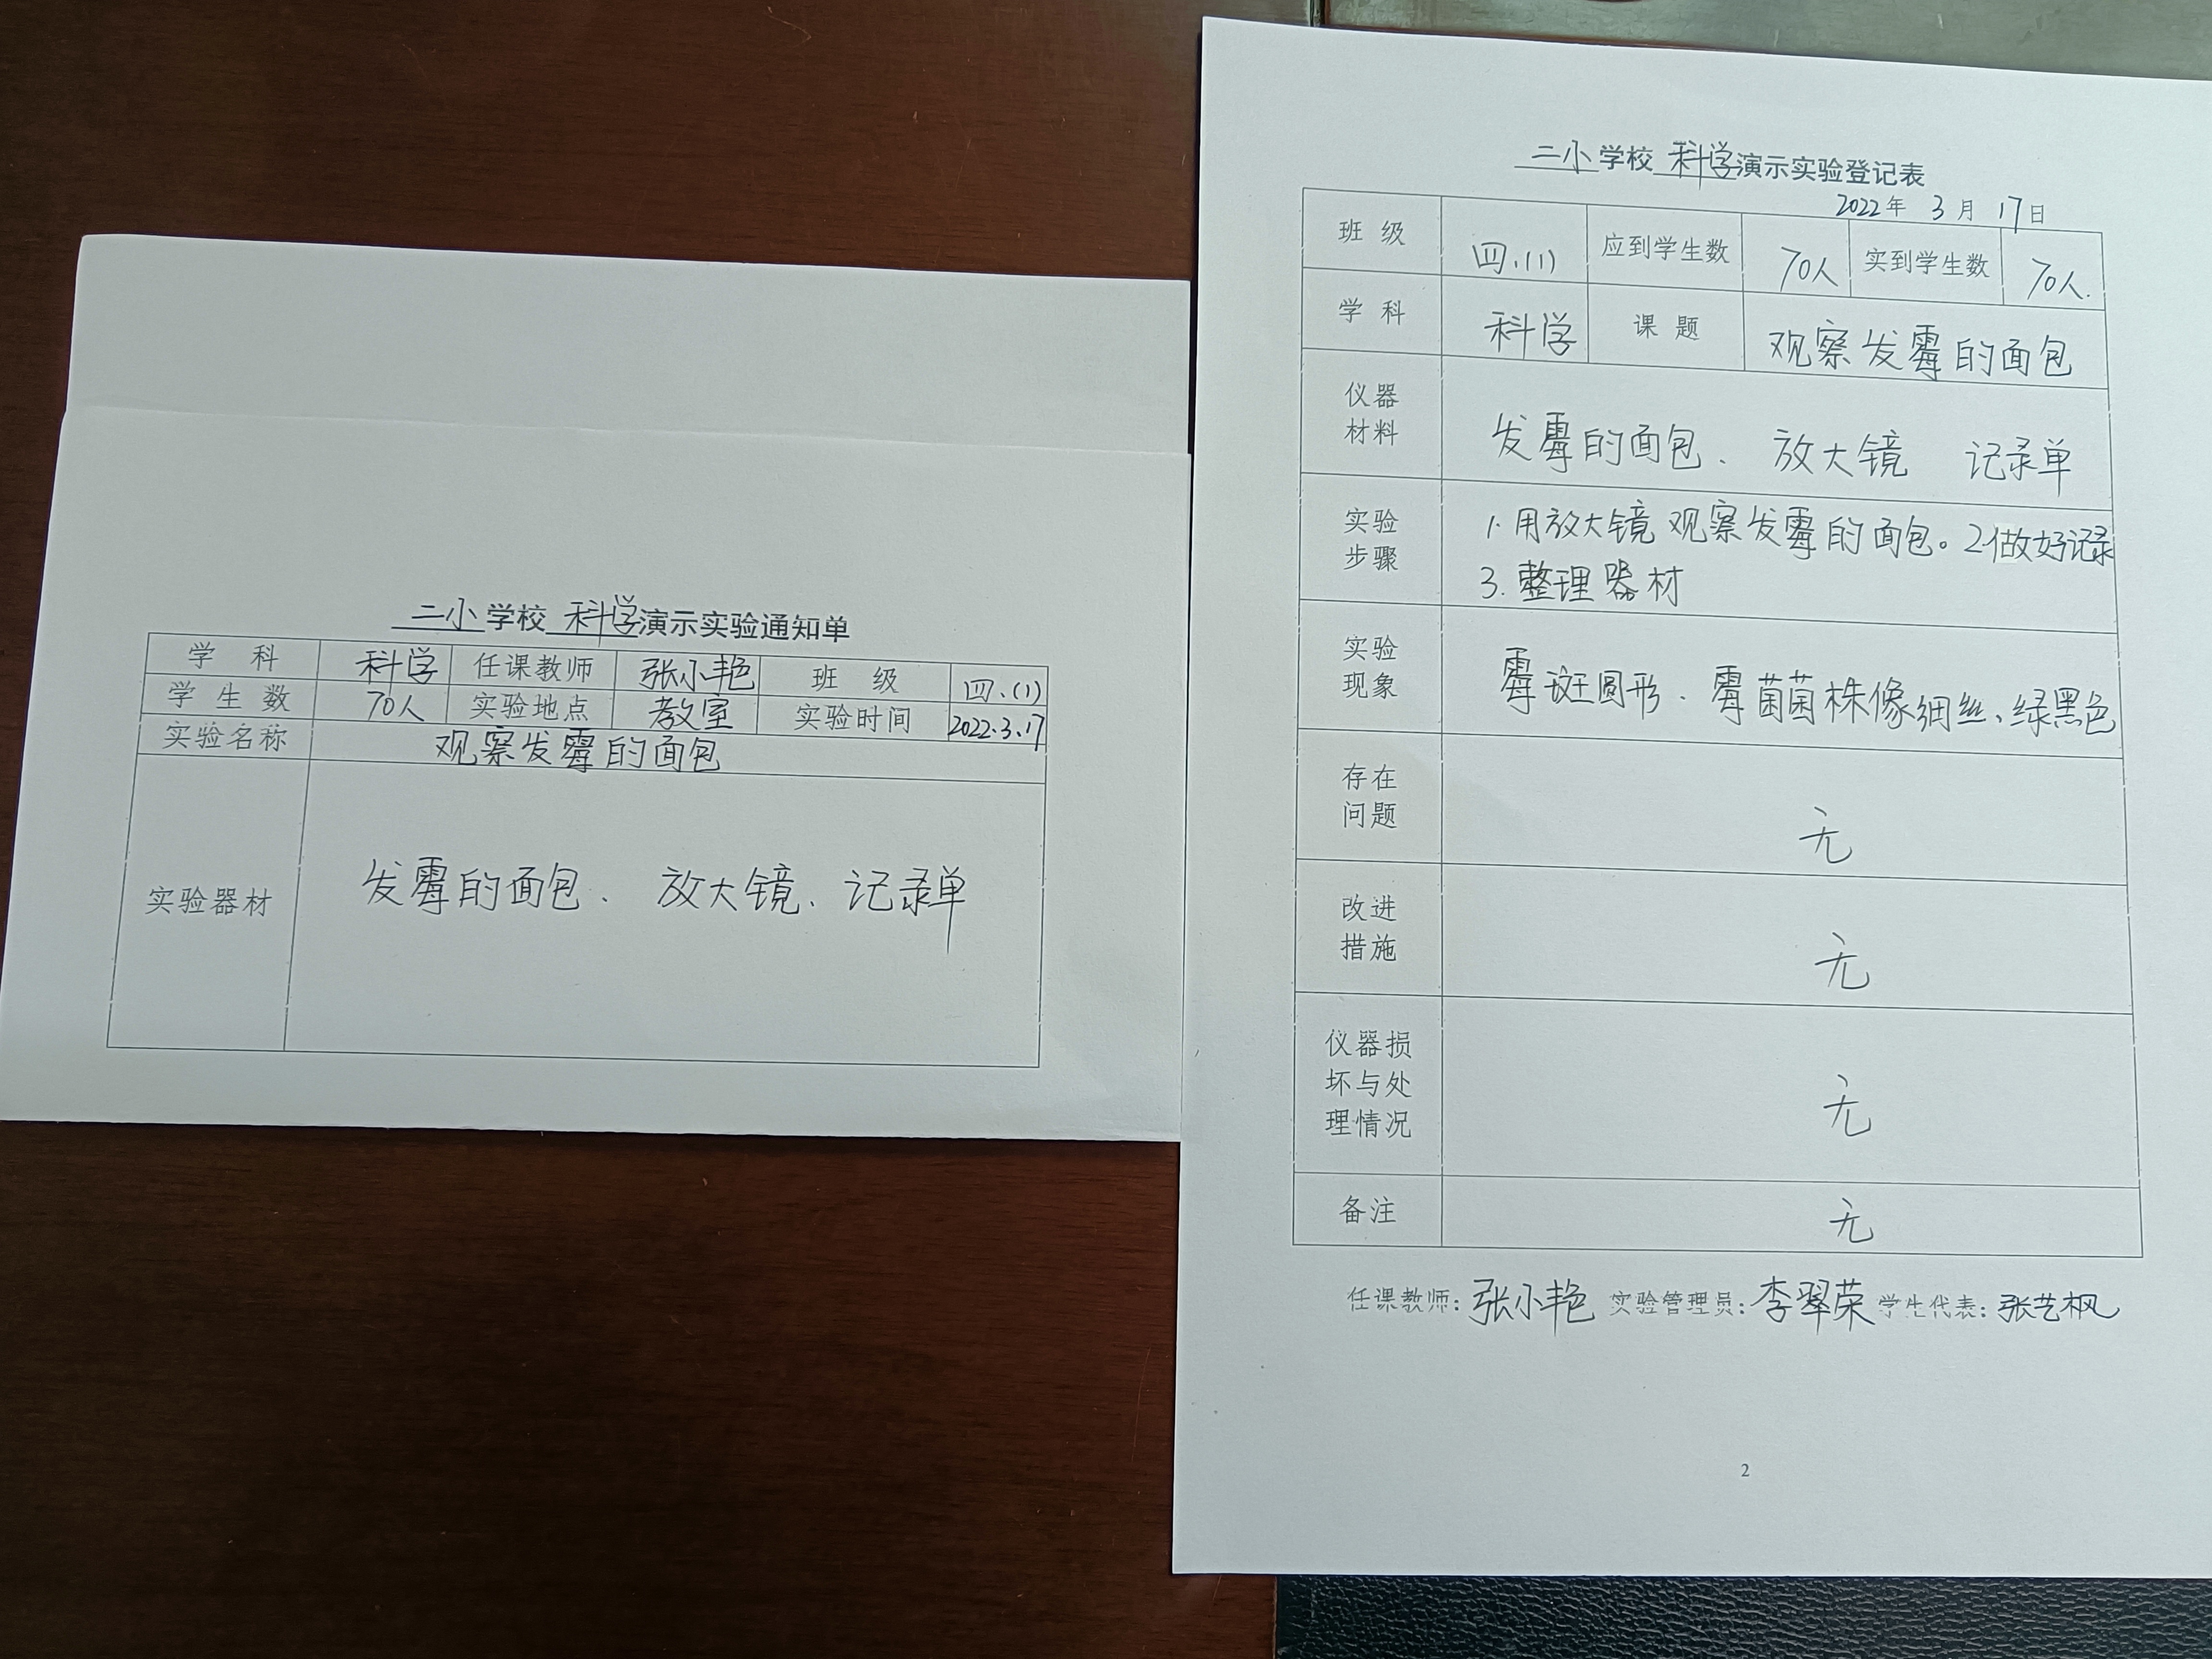 二小学校 科学演示实验通知单
学 科 科学 任课教师 张小艳 班 级 四.(1)
学生数 70人 实验地点 教室 实验时间 2022.3.17
实验名称 观察发霉的面包
实验器材 发霉的面包、 放大镜、记录单
二小学校 科学演示实验登记表
2022年 3月 17日
班 级 四.(1) 应到学生数 70人 实到学生数 70人.
学 科 科学 课 题 观察发霉的面包
仪器
材料
发霉的面包、 放大镜 记录单
实验
步骤
1.用放大镜观察发霉的面包。2.做好记录
3.整理器材
实验
现象
霉斑圆形、霉菌菌株像细丝、绿黑色
存在
问题
无
改进
措施
无
仪器损
坏与处
理情况
无
备注 无
任课教师:张小艳 实验管理员:李翠荣 学生代表:张艺枫
2